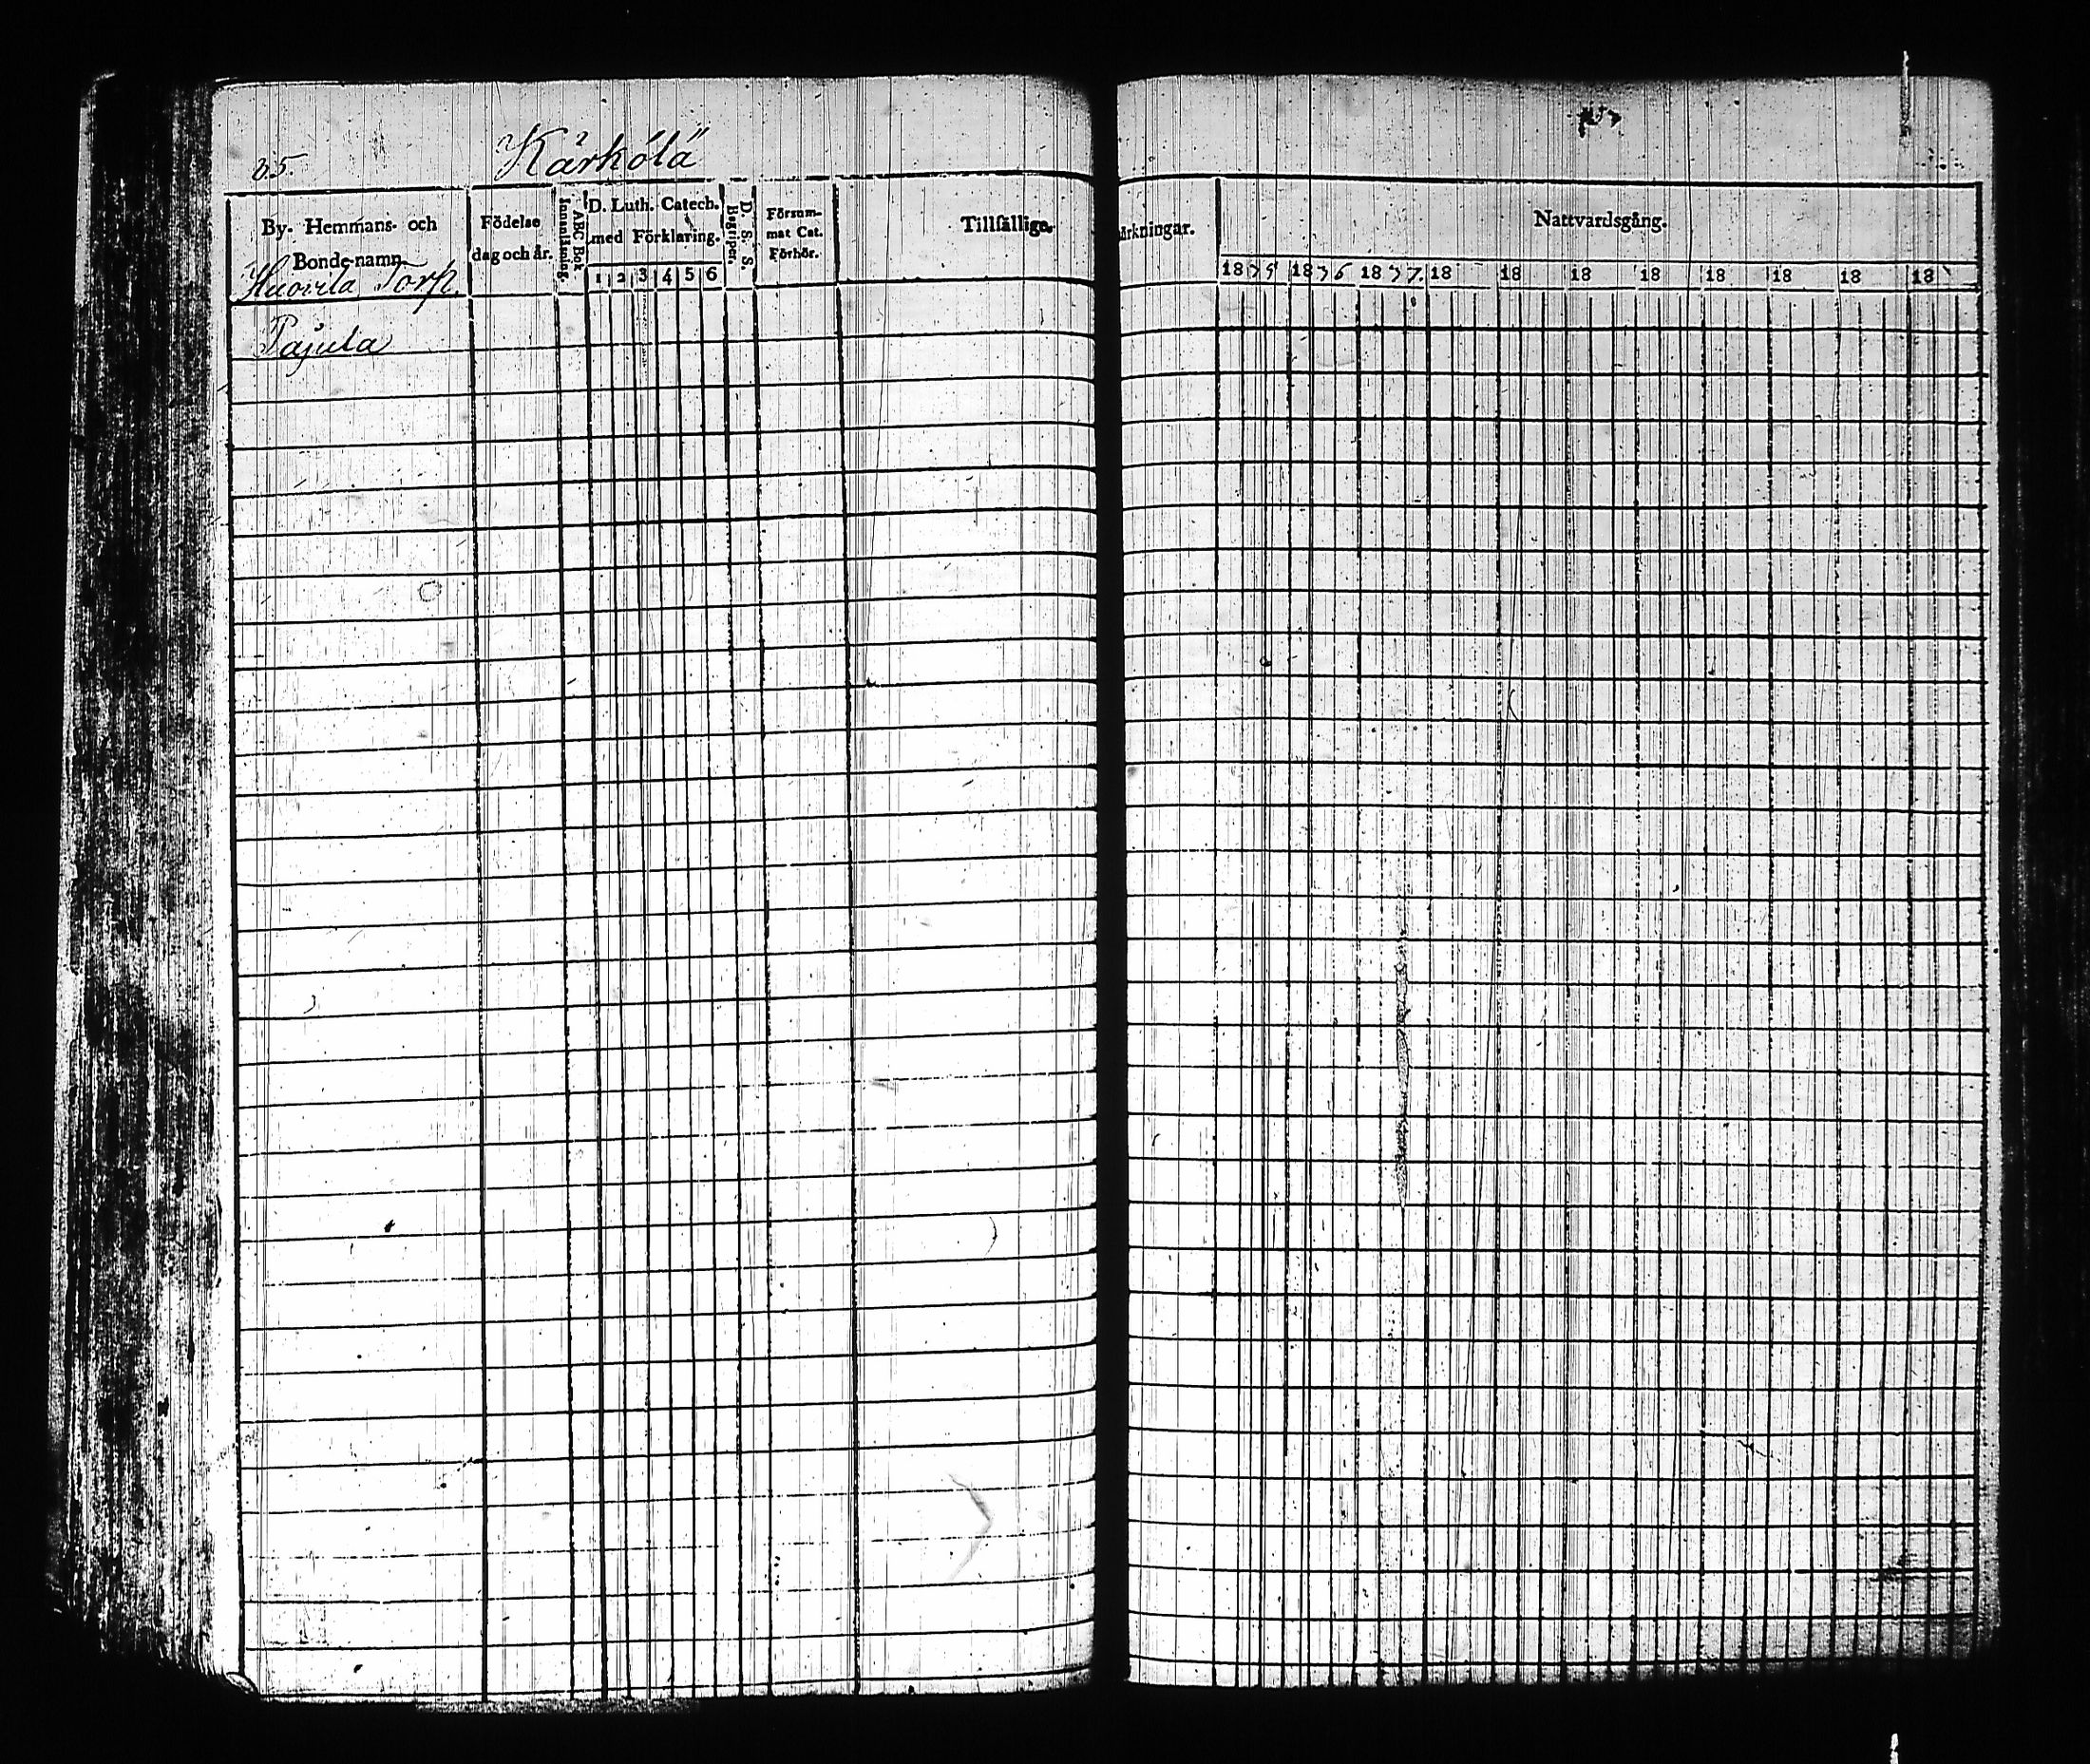 35. Kärkölä
By- Hemmans- och Bondenamn.
Födelse dag och år.
ABC Bok Innanläsning.
D. Luth. Catech. med Förklaring.
1 2 3 4 5 6
D. S. S. Begriper.
Försummat Cat. Förhör.
Tillfällige
ärkningar.
Nattvardsgång.
1835 1836 1837. 18 18 18 18 18 18 18 18
Huovila Torp
Pajula